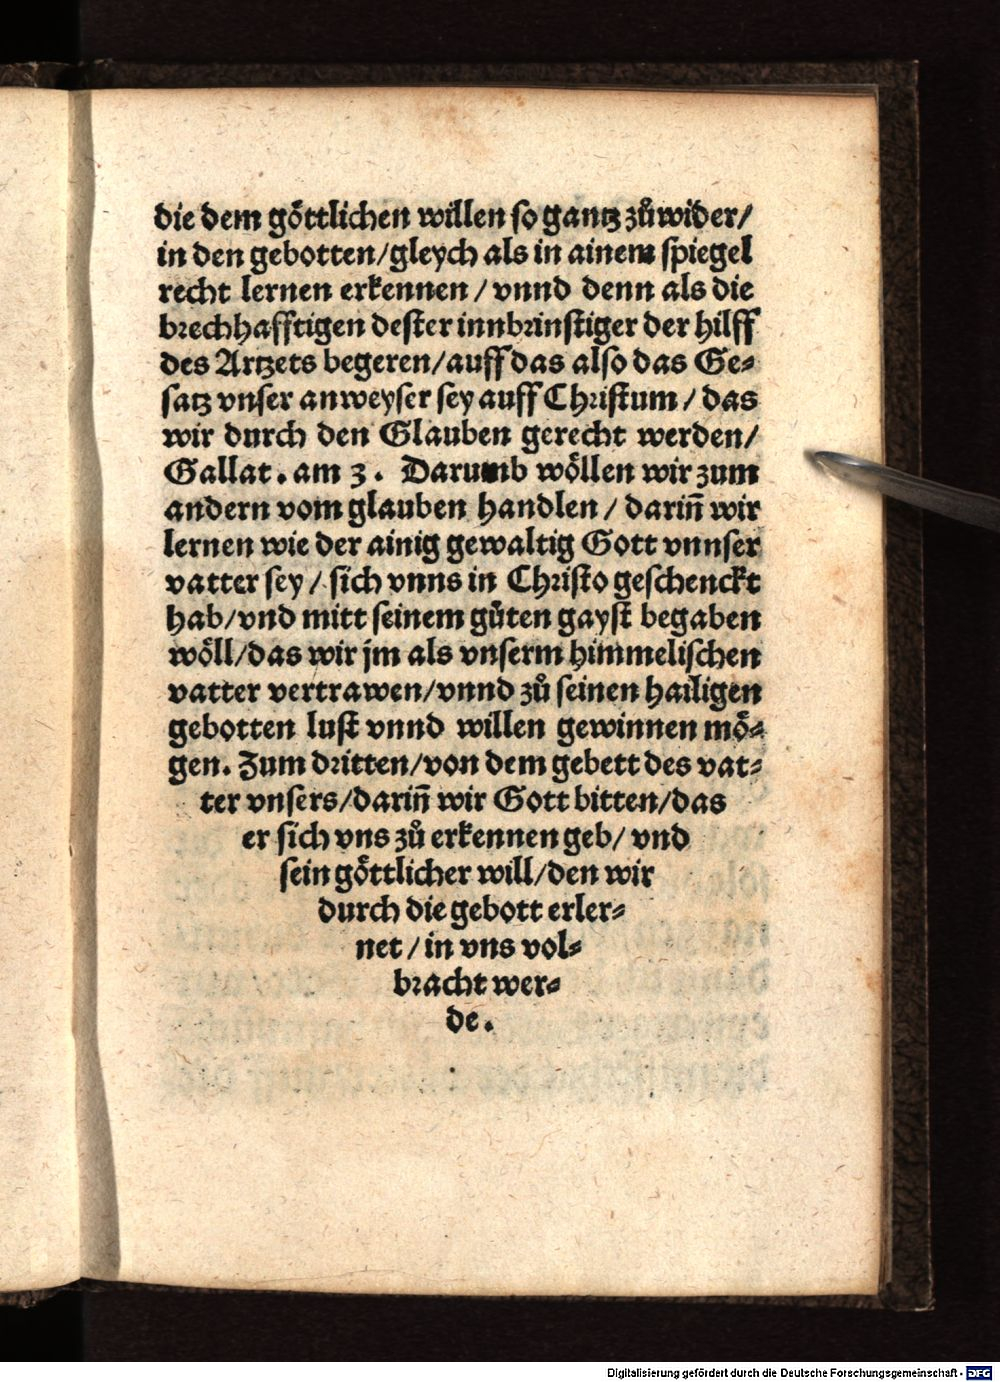 die dem göttlichen willen so gantz zůwider/
in den gebotten/gleych als in ainem spiegel
recht lernen erkennen / vnnd denn als die
brechhafftigen dester innbrinstiger der hilff
des Artzets begeren/auff das also das Ge⸗
satz vnser anweyser sey auff Christum / das
wir durch den Glauben gerecht werden/
Gallat. am 3. Darumb wöllen wir zum
andern vom glauben handlen / dariñ wir
lernen wie der ainig gewaltig Gott vnnser
vatter sey / sich vnns in Christo geschenckt
hab/vnd mitt seinem gůten gayst begaben
wöll/das wir jm als vnserm himmelischen
vatter vertrawen/vnnd zů seinen hailigen
gebotten lust vnnd willen gewinnen mö⸗
gen. Zum dritten/von dem gebett des vat⸗
ter vnsers/dariñ wir Gott bitten/das
er sich vns zů erkennen geb/ vnd
sein göttlicher will/den wir
durch die gebott erler⸗
net / in vns vol⸗
bracht wer⸗
de.
Digitalisierung gefördert durch die Deutsche Forschungsgemeinschaft - DFG